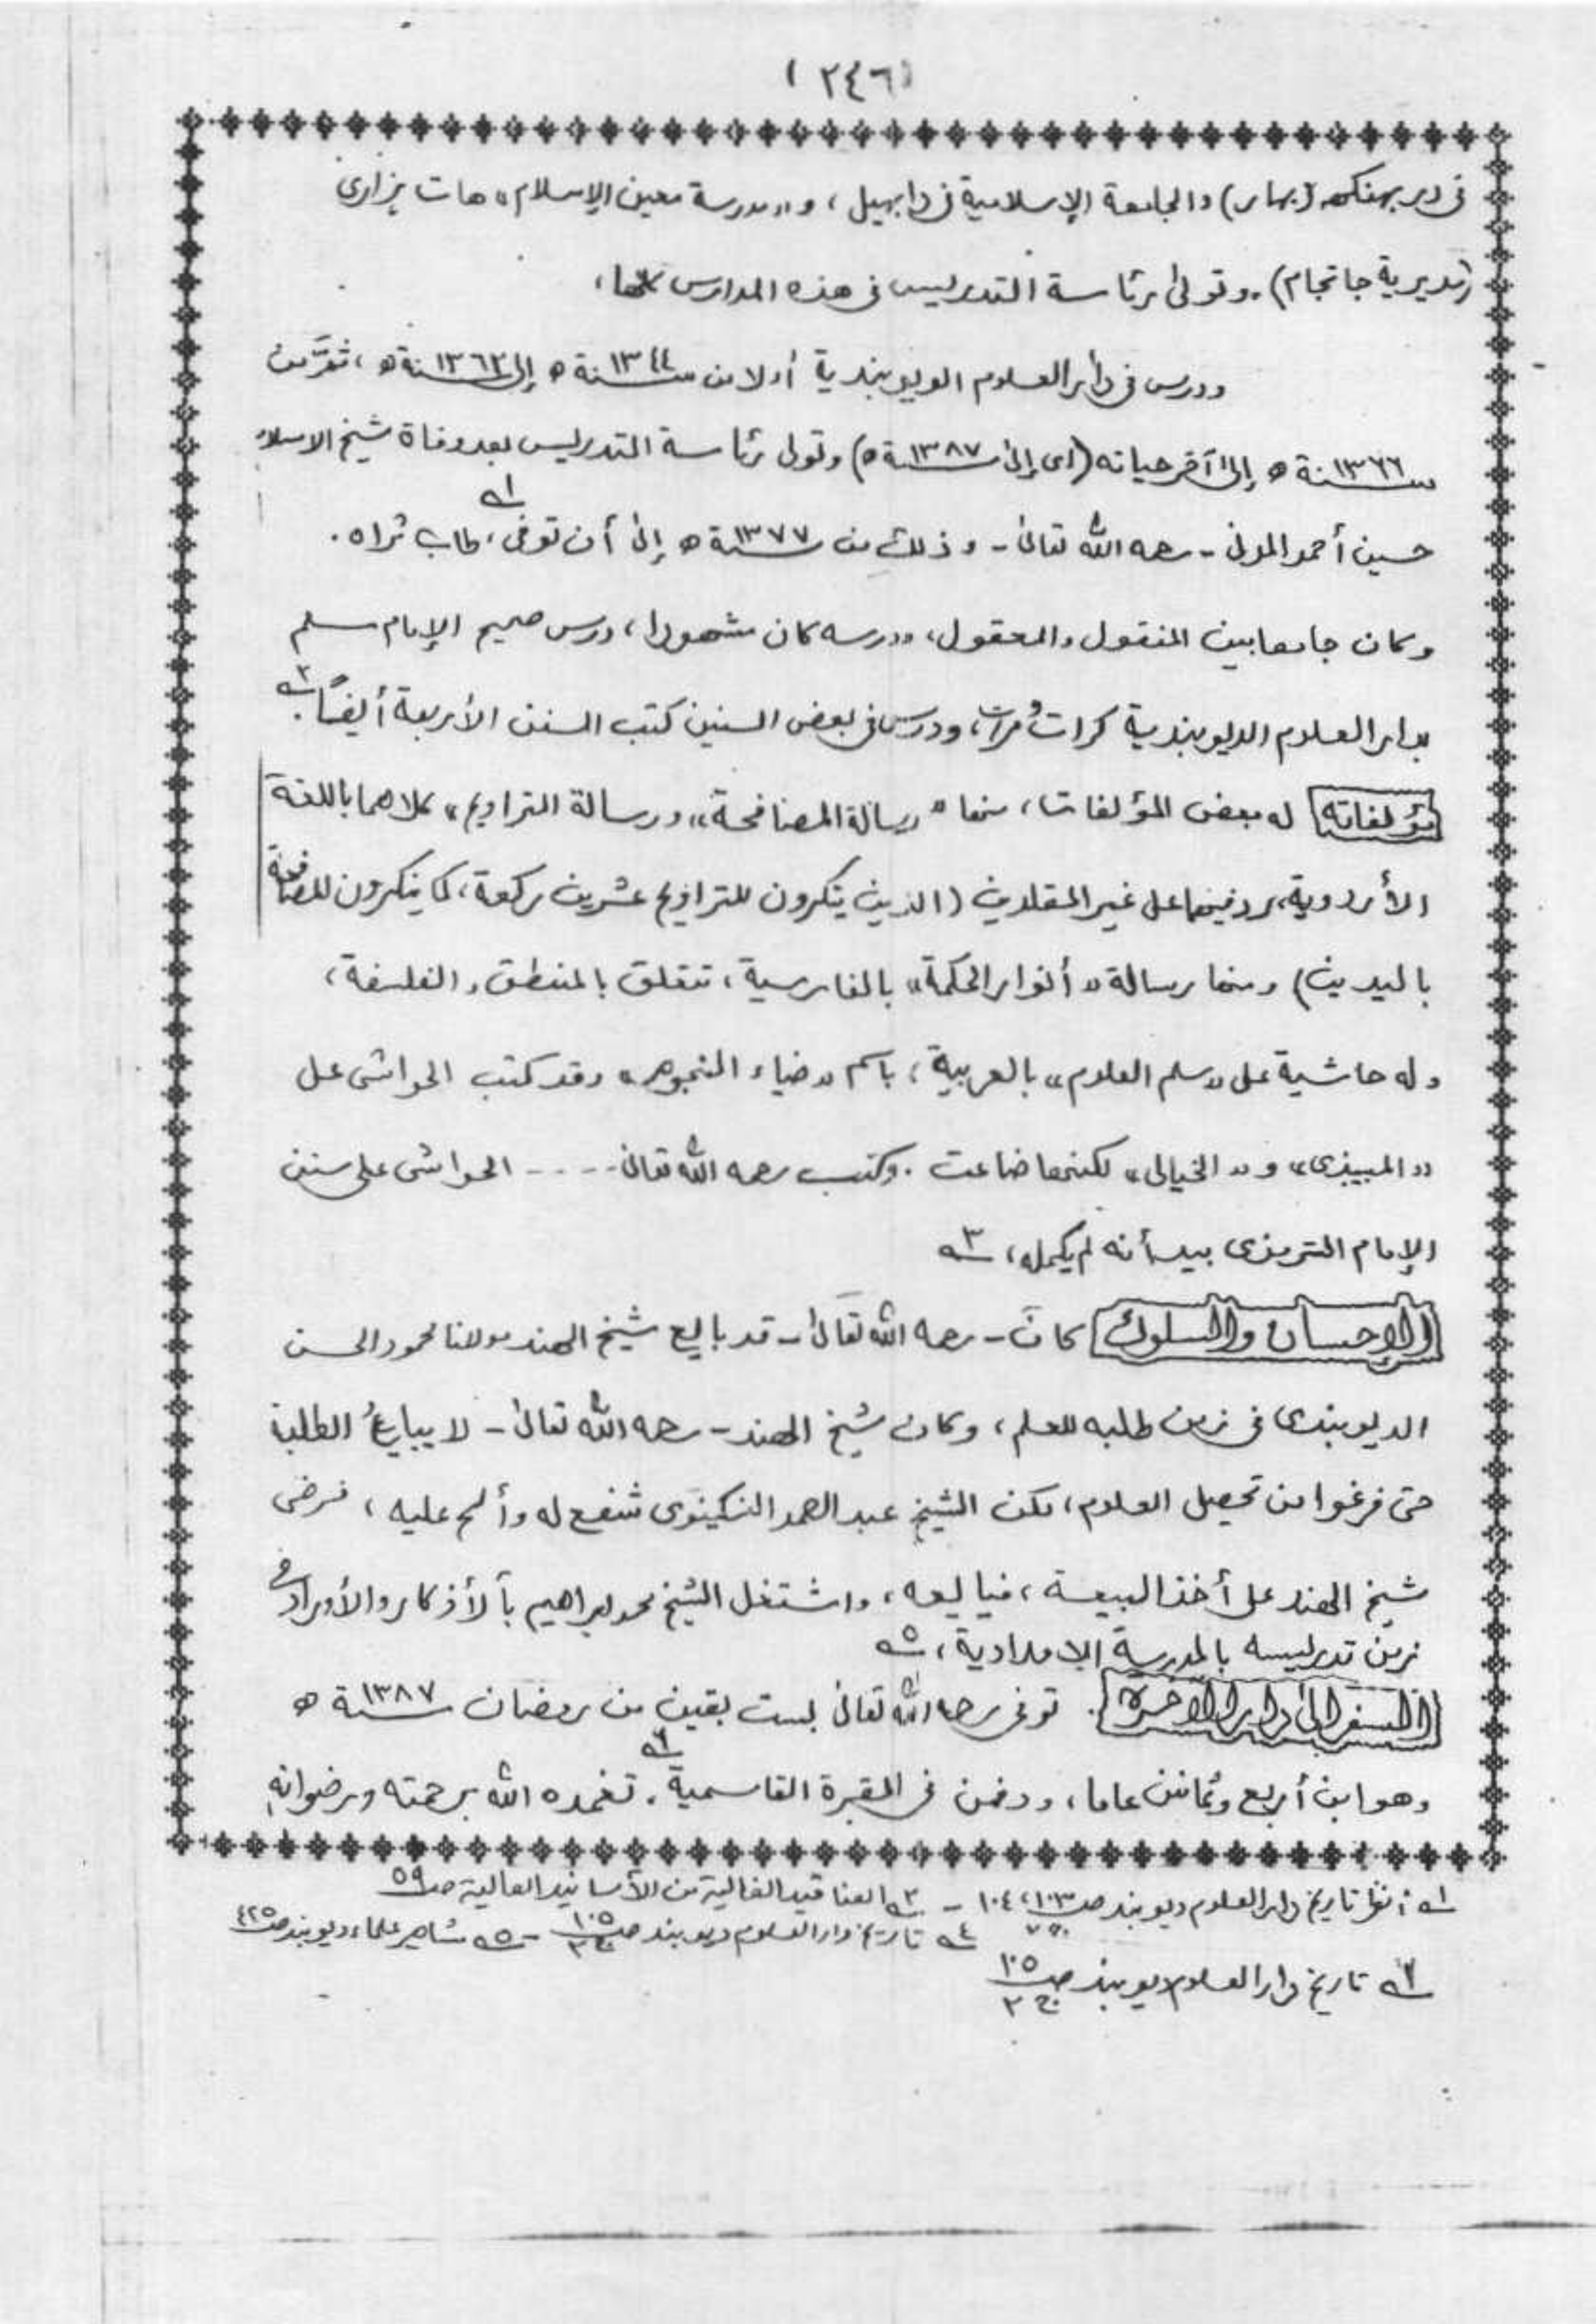 (٢٤٦)
فى دربهنكه (بهار) والجامعة الإسلامية فى دابهيل، و«مدرسة معين الإسلام» هات هزارى
(مديرية جاتجام). وتولى رئاسة التدريس فى هذه المدارس كلها،
ودرس فى دار العلوم الديوبندية أولا من سنة ١٣٤٤ ه إلى سنة ١٣٦٢ ه، ثم من
سنة ١٣٦٦ ه إلى آخر حياته (اى إلى سنة ١٣٨٧ ه) وتولى رئاسة التدريس بعد وفاة شيخ الاسلام
حسين أحمد المدنى - رحمه الله تعالى - وذلك من سنة ١٣٧٧ ه إلى أن توفى، طاب ثراه. ١
وكان جامعا بين المنقول والمعقول، ودرسه كان مشهورا، درس صحيح الإمام مسلم
بدار العلوم الديوبندية كرات ومرات، ودرس فى بعض السنين كتب السنن الأربعة أيضًا. ٢
مؤلفاته له بعض المؤلفات، منها «رسالة المصافحة» ورسالة التراويح» كلاهما باللغة
الأردوية، رد فيهما على غير المقلدين (الذين ينكرون للتراويح عشرين ركعة، كما ينكرون للمصافحة
باليدين) ومنها رسالة «أنوار الحكمة» بالفارسية، تتعلق بالمنطق والفلسفة،
وله حاشية على «سلم العلوم» بالعربية، باسم «ضياء النجوم» وقد كتب الحواشى على
«الميبذى» و«الخيالى» لكنها ضاعت. وكتب رحمه الله تعالى ---- الحواشى على سنن
الإمام الترمذى بيد أنه لم يكمله، ٣
الإحسان والسلوك كانَ - رحمه الله تعَالىٰ - قد بايع شيخ الهند مولانا محمود الحسن
الديوبندى فى زمن طلبه للعلم، وكان شيخ الهند - رحمه الله تعالى - لا يبايعُ الطلبة
حتى فرغوا من تحصيل العلوم، لكن الشيخ عبد الصمد النكينوى شفع له وألح عليه، فرضى
شيخ الهند على أخذ البيعة، فبايعه، واشتغل الشيخ محمد إبراهيم بالأذكار والأوراد فى
زمن تدريسه بالمدرسة الإمدادية، ٥
السفر إلى دار الآخرة. توفى رحمه الله تعالى لست بقين من رمضان سنة ١٣٨٧ ه
وهو ابن أربع وثمانين عاما، ودفن فى المقبرة القاسمية. ٦ تغمده الله برحمته ورضوانه
١ انظر تاريخ دار العلوم ديوبند ص ١٠٣، ١٠٤ ج ٢ - ٢ العناقيد الغالية من الأسانيد العالية ص ٥٩
٤ تاريخ دار العلوم ديوبند ص ١٠٥ ج ٢ - ٥ مشاهير علماء ديوبند ص ٤٢٥
٦ تاريخ دار العلوم ديوبند ص ١٠٥ ج ٢